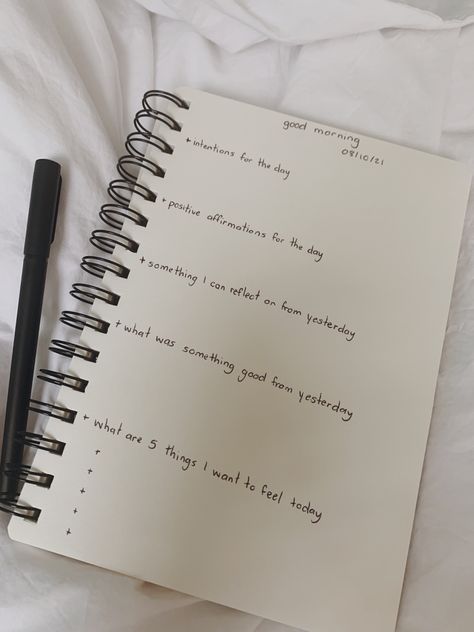 good morning
08/10/21
+ intentions for the day
+ positive affirmations for the day
+ something I can reflect on from yesterday
+ what was something good from yesterday
+ what are 5 things I want to feel today
+
+
+
+
+